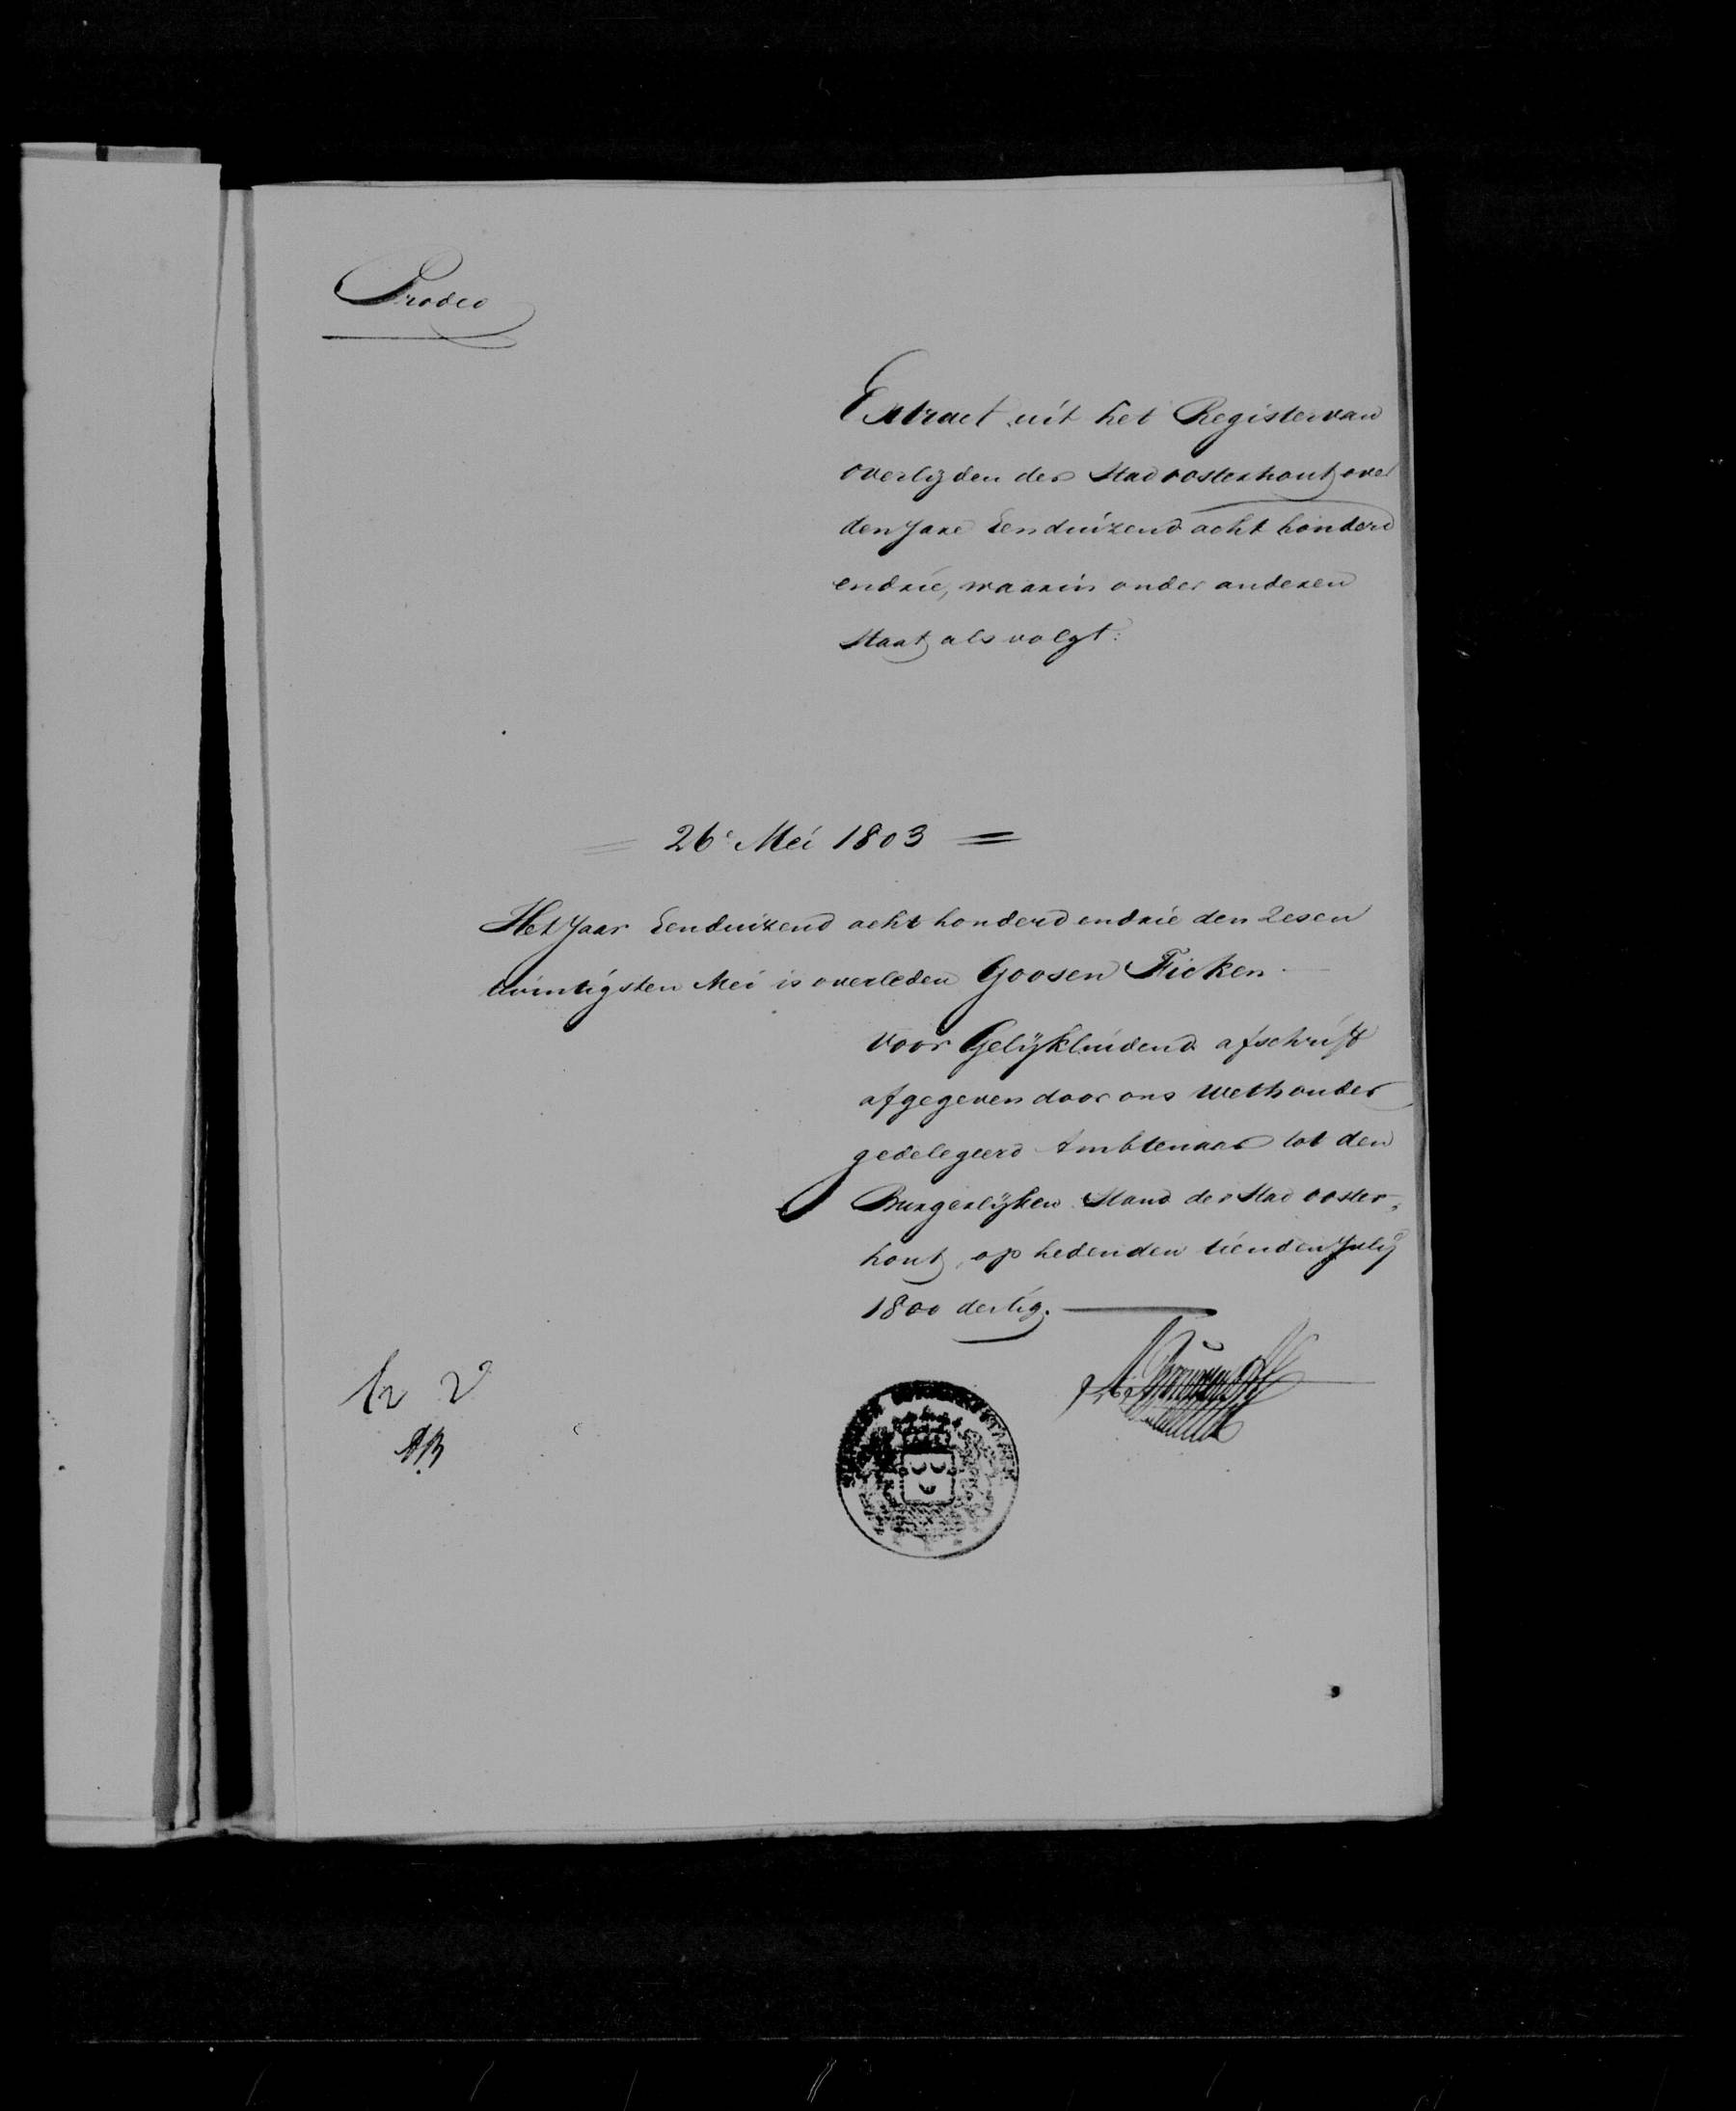 Prodeo
Extract uit het Register van
overlijden der Stad oosterhout over
den Jare Eenduizend acht honderd
endrie, waarin onder anderen
Staat als volgt:
= 26e Mei 1803 =
Het Jaar Eenduizend acht honderd endrie den Zesen
twintigsten Mei is overleden Goosen Ficken
Voor Gelijkluidend afschrift
afgegeven door ons Wethouder
gedelegeerd Ambtenaar tot den
Burgerlijken Stand der Stad ooster„
hout, op heden den tienden Julij
1800 dertig.